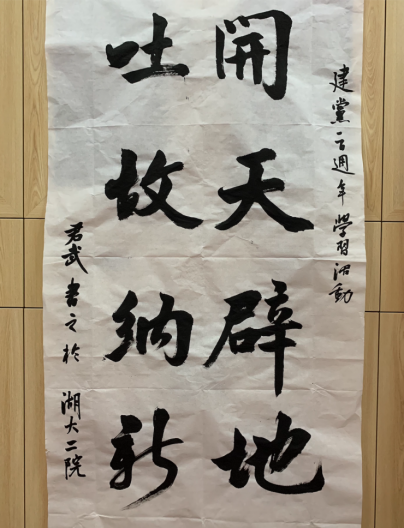 建黨百週年學習活動
開天辟地
吐故納新
君武書之於湖大二院